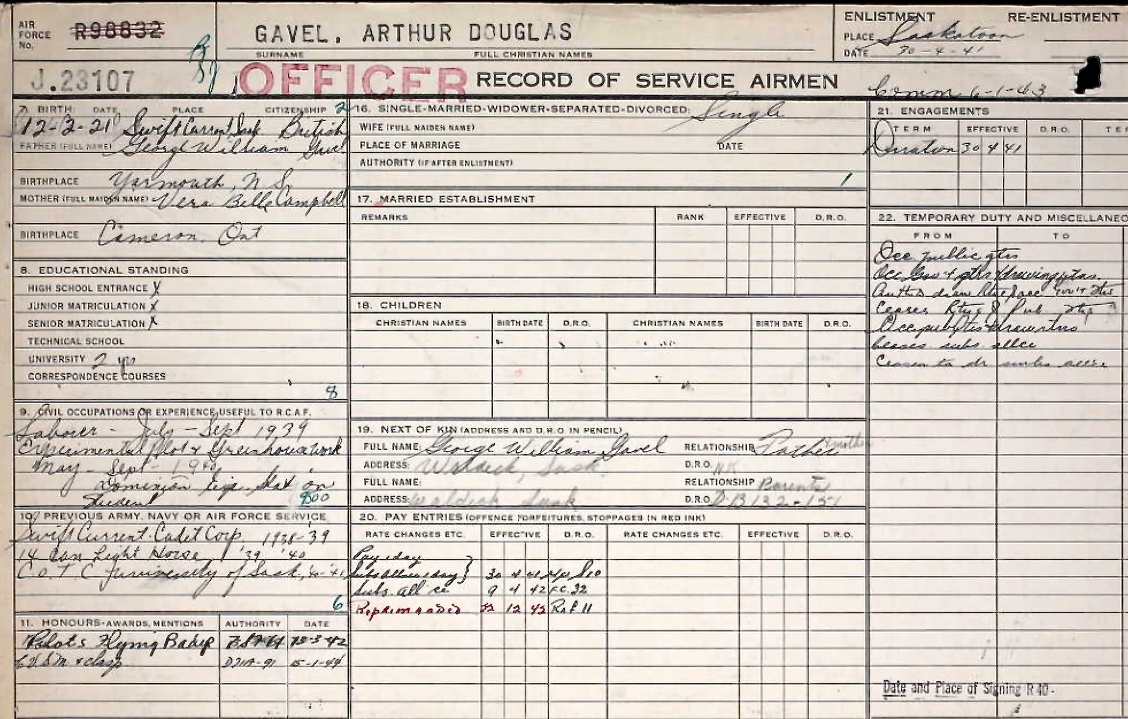 AIR FORCE No. R98832
GAVEL, ARTHUR DOUGLAS
SURNAME FULL CHRISTIAN NAMES
ENLISTMENT RE-ENLISTMENT
PLACE Saskatoon
DATE 30-4-41
J.23107
OFFICER RECORD OF SERVICE AIRMEN
Comm 6-1-43
7. BIRTH: DATE PLACE CITIZENSHIP 2
12-2-21 Swift Current, Sask British
FATHER (FULL NAME) George William Gavel
BIRTHPLACE Yarmouth, N.S.
MOTHER (FULL MAIDEN NAME) Vera Belle Campbell
BIRTHPLACE Cameron, Ont
8. EDUCATIONAL STANDING
HIGH SCHOOL ENTRANCE X
JUNIOR MATRICULATION X
SENIOR MATRICULATION X
TECHNICAL SCHOOL
UNIVERSITY 2 yrs
CORRESPONDENCE COURSES
8
9. CIVIL OCCUPATIONS OR EXPERIENCE USEFUL TO R.C.A.F.
Laborer - July - Sept 1939
Experimental Plot & Greenhouse work
May - Sept - 1940
Dominion Exp. Stat'on
Student 800
10. PREVIOUS ARMY, NAVY OR AIR FORCE SERVICE
Swift Current Cadet Corp 1938-39
14 Can Light Horse '39 '40
C.O.T.C University of Sask, 40-41
6
11. HONOURS-AWARDS, MENTIONS AUTHORITY DATE
Pilots Flying Badge
C.V.S.M. & clasp 15-1-44
16. SINGLE-MARRIED-WIDOWER-SEPARATED-DIVORCED: Single
WIFE (FULL MAIDEN NAME)
PLACE OF MARRIAGE DATE
AUTHORITY (IF AFTER ENLISTMENT)
1
17. MARRIED ESTABLISHMENT
REMARKS RANK EFFECTIVE D.R.O.
18. CHILDREN
CHRISTIAN NAMES BIRTH DATE D.R.O. CHRISTIAN NAMES BIRTH DATE D.R.O.
19. NEXT OF KIN (ADDRESS AND D.R.O. IN PENCIL)
FULL NAME: George William Gavel RELATIONSHIP Father & mother
ADDRESS: Waldeck, Sask D.R.O.
FULL NAME: RELATIONSHIP Parents
ADDRESS: Waldeck Sask D.R.O. DB132-151
20. PAY ENTRIES (OFFENCE FORFEITURES, STOPPAGES IN RED INK)
RATE CHANGES ETC. EFFECTIVE D.R.O. RATE CHANGES ETC. EFFECTIVE D.R.O.
Pay 1 day
Subs Allow 1 day } 30 4 41
Subs. all ce 9 4 42 FC.32
Reprimanded 12 42 Rof 11
21. ENGAGEMENTS
TERM EFFECTIVE D.R.O. TE
Duration 30 4 41
22. TEMPORARY DUTY AND MISCELLANEO
FROM TO
Occ public qtrs
Ceases subs. allce
Ceases to dr subs allce
Date and Place of Signing R 40-